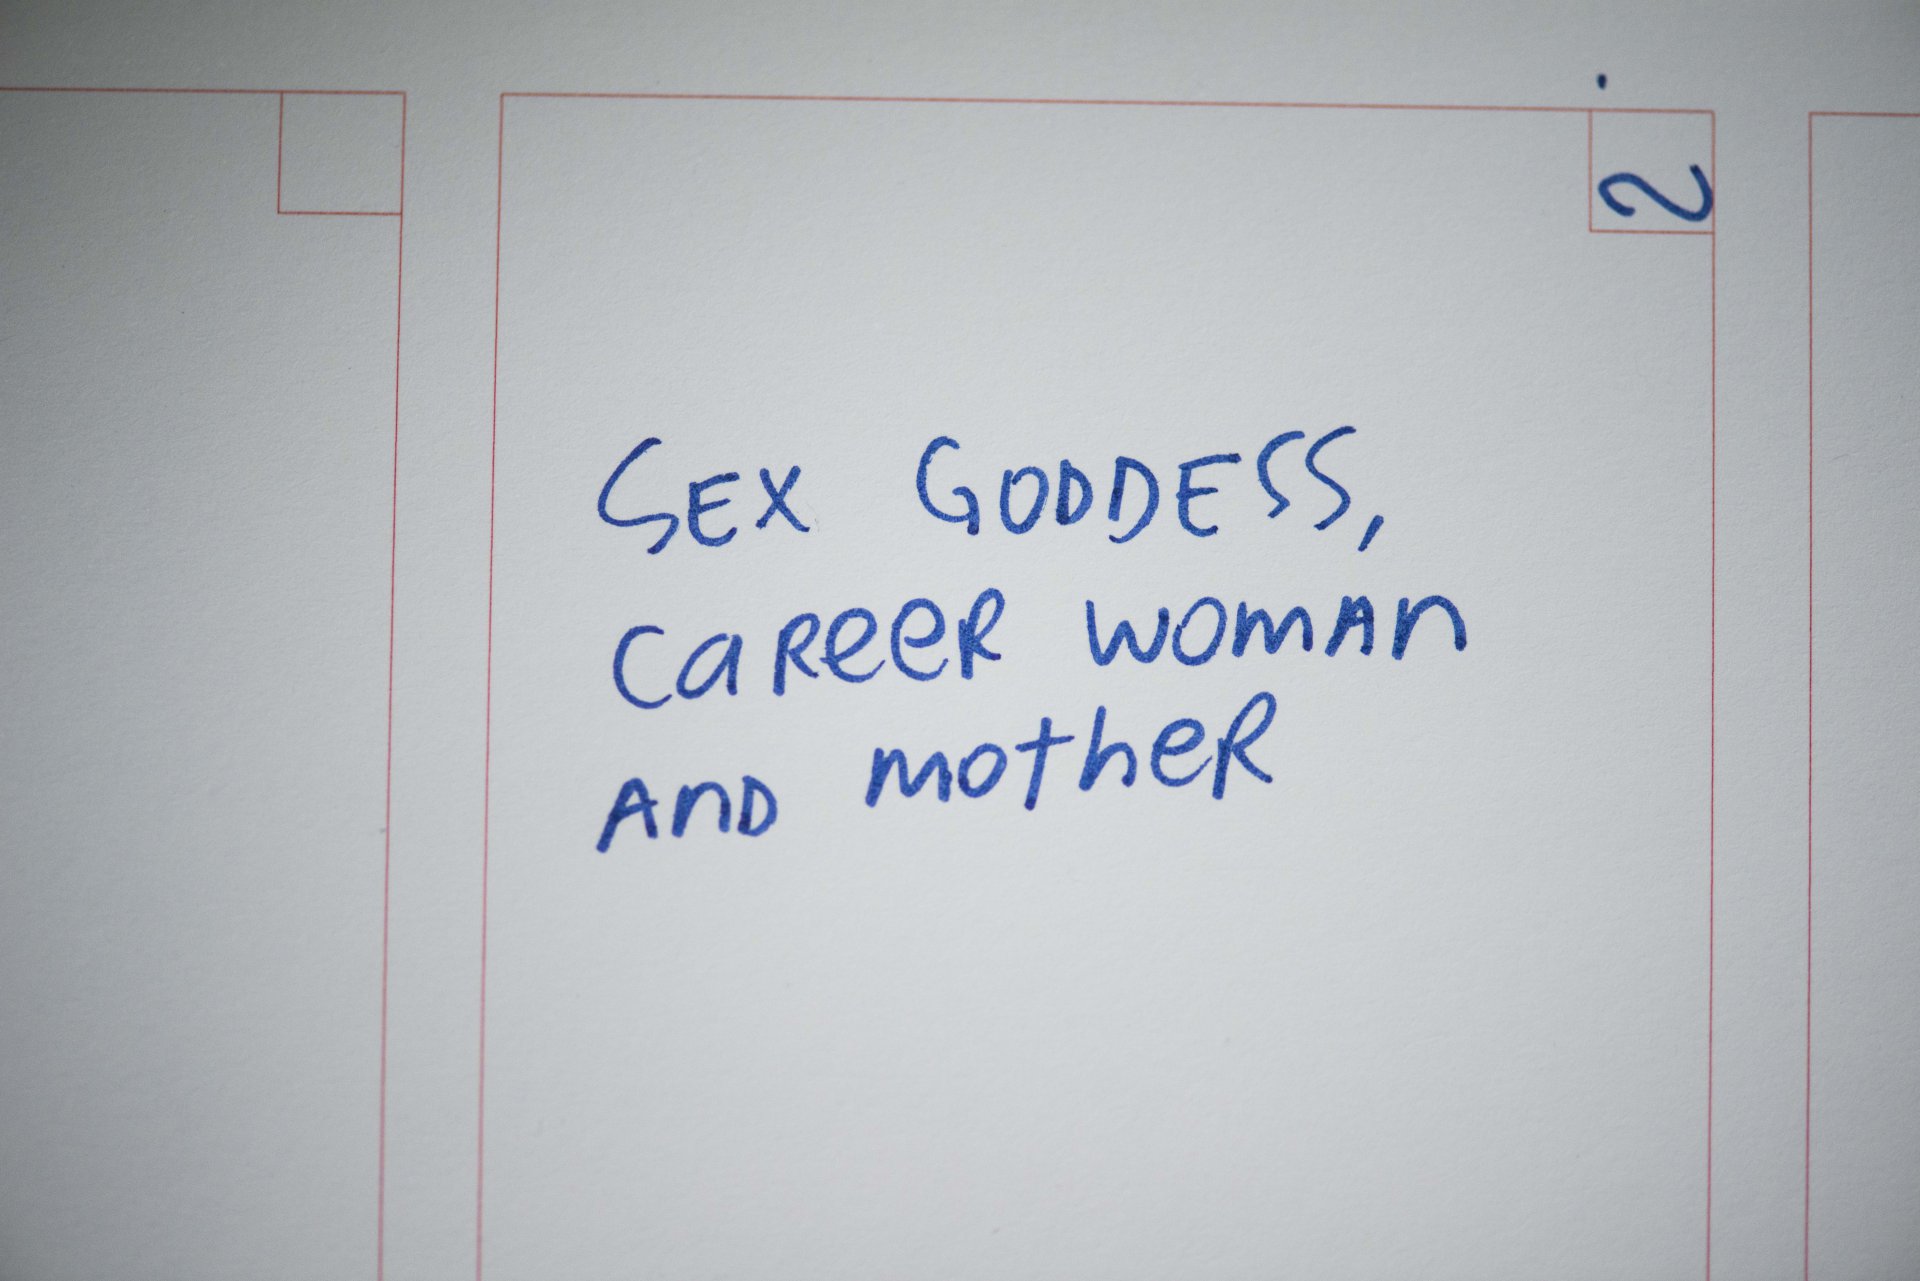 2
SEX GODDESS,
CAREER WOMAN
AND MOTHER